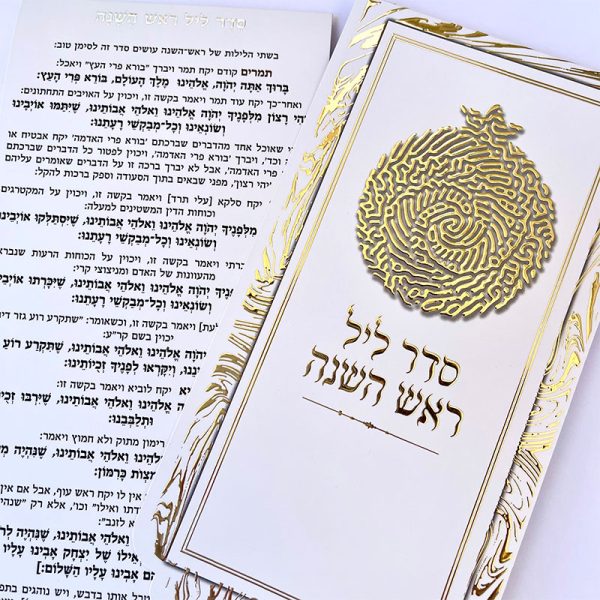 סדר ליל ראש השנה
בשתי הלילות של ראש-השנה עושים סדר זה לסימן טוב:
תמרים קודם יקח תמר ויברך "בורא פרי העץ" ויאכל:
בָּרוּךְ אַתָּה יְהֹוָה, אֱלֹהֵינוּ מֶלֶךְ הָעוֹלָם, בּוֹרֵא פְּרִי הָעֵץ:
ואחר-כך יקח עוד תמר ויאמר בקשה זו, ויכוין על האויבים התחתונים:
יְהִי רָצוֹן מִלְּפָנֶיךָ יְהֹוָה אֱלֹהֵינוּ וֵאלֹהֵי אֲבוֹתֵינוּ, שֶׁיִּתַּמּוּ אוֹיְבֵינוּ
וְשׂוֹנְאֵינוּ וְכָל-מְבַקְשֵׁי רָעָתֵנוּ:
שאוכל אחד מהדברים שברכתם 'בורא פרי האדמה' יקח אבטיח או
וכד', ויברך 'בורא פרי האדמה', ויכוין לפטור כל הדברים שברכתם
פרי האדמה', אבל לא יברך ברכה זו על הדברים שאומרים עליהם
'יהי רצון', מפני שבאים בתוך הסעודה וספק ברכות להקל:
יקח סלקא [עלי תרד] ויאמר בקשה זו, ויכוין על המקטרגים
וכוחות הדין המשטינים למעלה:
מִלְּפָנֶיךָ יְהֹוָה אֱלֹהֵינוּ וֵאלֹהֵי אֲבוֹתֵינוּ, שֶׁיִּסְתַּלְּקוּ אוֹיְבֵינוּ
וְשׂוֹנְאֵינוּ וְכָל-מְבַקְשֵׁי רָעָתֵנוּ:
ויאמר בקשה זו, ויכוין על הכוחות הרעות שנבראו
מהעוונות של האדם ומניצוצי קרי:
יְהֹוָה אֱלֹהֵינוּ וֵאלֹהֵי אֲבוֹתֵינוּ, שֶׁיִּכָּרְתוּ אוֹיְבֵינוּ
וְשׂוֹנְאֵינוּ וְכָל-מְבַקְשֵׁי רָעָתֵנוּ:
ויאמר בקשה זו, וכשאומר: "שתקרע רוע גזר דין
יכוין בשם קר"ע:
יְהֹוָה אֱלֹהֵינוּ וֵאלֹהֵי אֲבוֹתֵינוּ, שֶׁתִּקְרַע רוֹעַ
וְיִקָּרְאוּ לְפָנֶיךָ זְכֻיּוֹתֵינוּ:
יקח לוביא ויאמר בקשה זו:
אֱלֹהֵינוּ וֵאלֹהֵי אֲבוֹתֵינוּ, שֶׁיִּרְבּוּ זְכֻיּוֹתֵינוּ
וּתְלַבְּבֵנוּ:
רימון מתוק ולא חמוץ ויאמר:
אֱלֹהֵינוּ וֵאלֹהֵי אֲבוֹתֵינוּ, שֶׁנִּהְיֶה
מִצְוֹת כָּרִמּוֹן:
אין לו יקח ראש עוף, אבל אם אין
ואילו" וכו', אלא רק "שנהיה
לזנב":
וֵאלֹהֵי אֲבוֹתֵינוּ, שֶׁנִּהְיֶה לְרֹאשׁ
אֵילוֹ שֶׁל יִצְחָק אָבִינוּ עָלָיו
אָבִינוּ עָלָיו הַשָּׁלוֹם:]
אותו בדבש, ויש נוהגים בתפוח
סדר ליל
ראש השנה